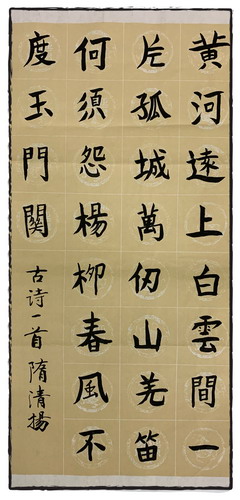 黄河遠上白雲間一
片孤城萬仞山羌笛
何須怨楊柳春風不
度玉門關
古诗一首隋清揚